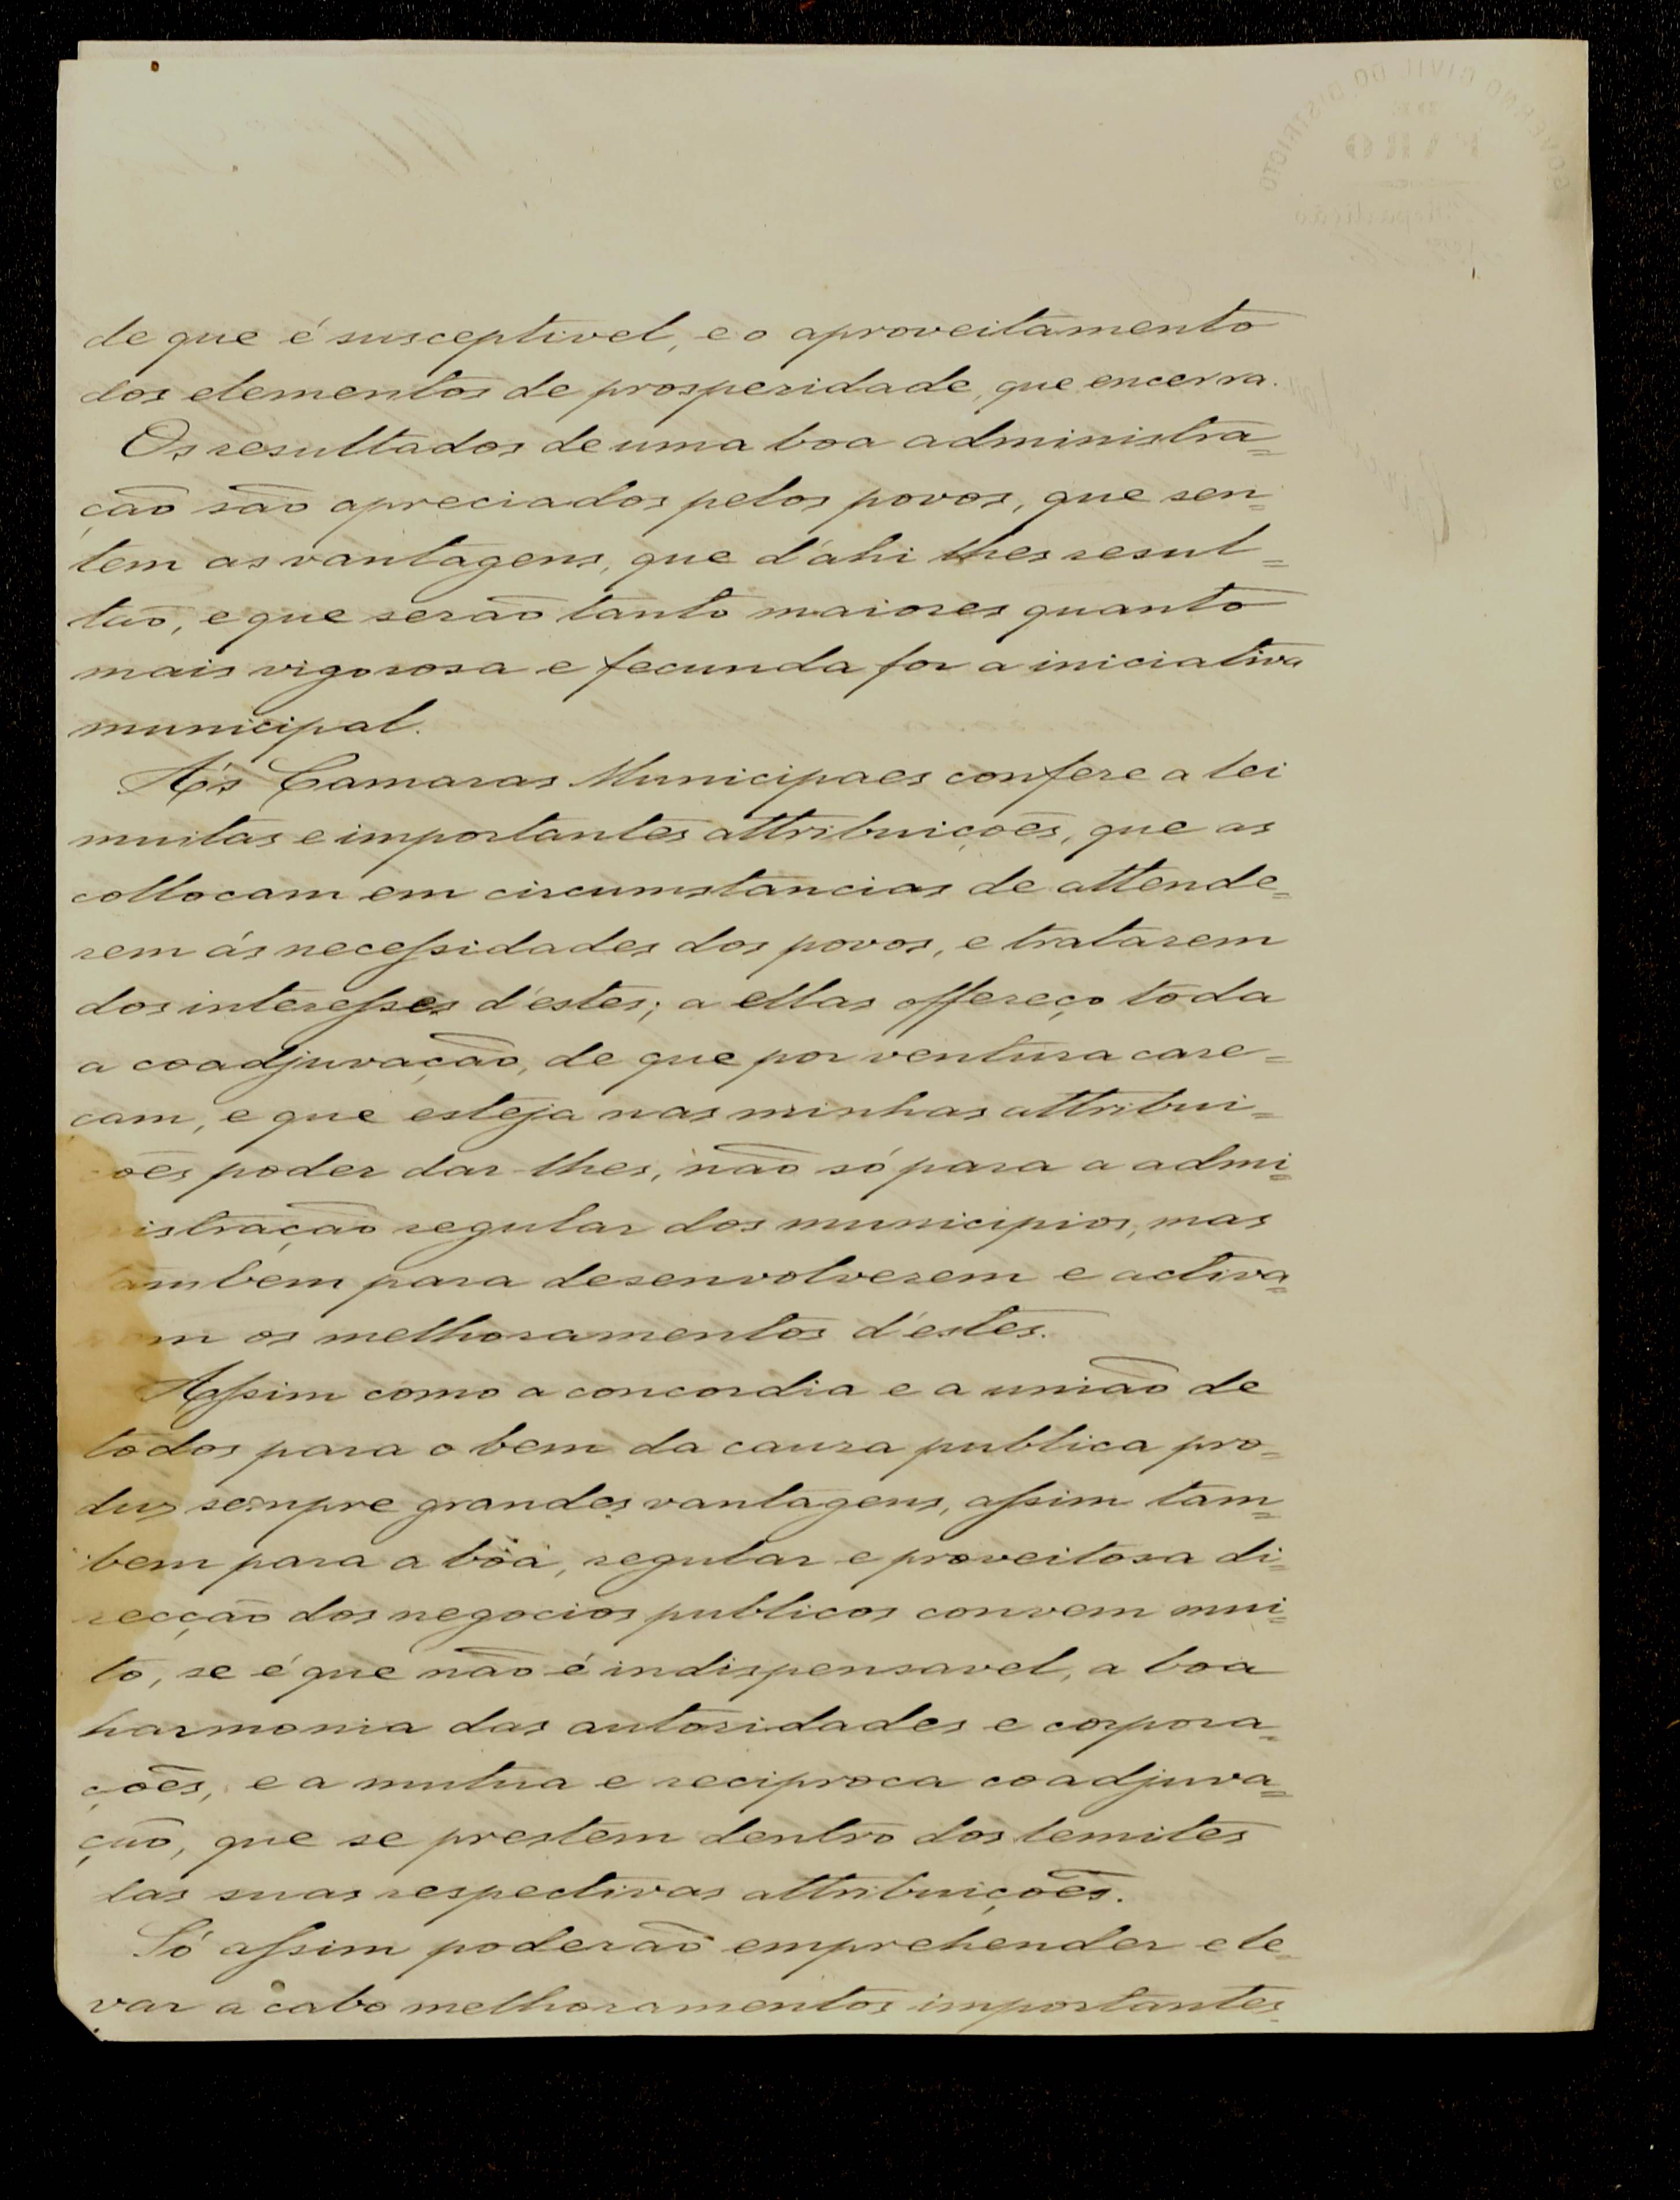 de que é susceptivel, e o aproveitamento
dos elementos de prosperidade, que encerra.
Os resultados de uma boa administra=
ção são apreciados pelos povos, que sen=
tem as vantagens, que d'ahi lhes resul=
tão, e que serão tanto maiores quanto
mais vigorosa e fecunda for a iniciativa
municipal.
A's Camaras Municipaes confere a lei
muitas e importantes attribuições, que as
collocam em circumstancias de attende=
rem ás necessidades dos povos, e tratarem
dos interesses d'estes; a ellas offereço toda
a coadjuvação, de que por ventura care=
cam, e que esteja nas minhas attribui=
ões poder dar-lhes, não só para a admi=
istração regular dos municipios, mas
ambem para desenvolverem e activa=
m os melhoramentos d'estes.
Assim como a concordia e a união de
todos para o bem da causa publica pro=
duz sempre grandes vantagens, assim tam=
bem para a bôa, regular e proveitosa di=
recção dos negocios publicos convem mui=
to, se é que não é indispensavel, a boa
harmonia das autoridades e corpora=
ções, e a mutua e reciproca coadjuva=
ção, que se prestem dentro dos lemites
das suas respectivas attribuições.
Só assim poderão emprehender e le=
var a cabo melhoramentos importantes
GOVERNO CIVIL DO DISTRICTO
DE
FARO
Repartição